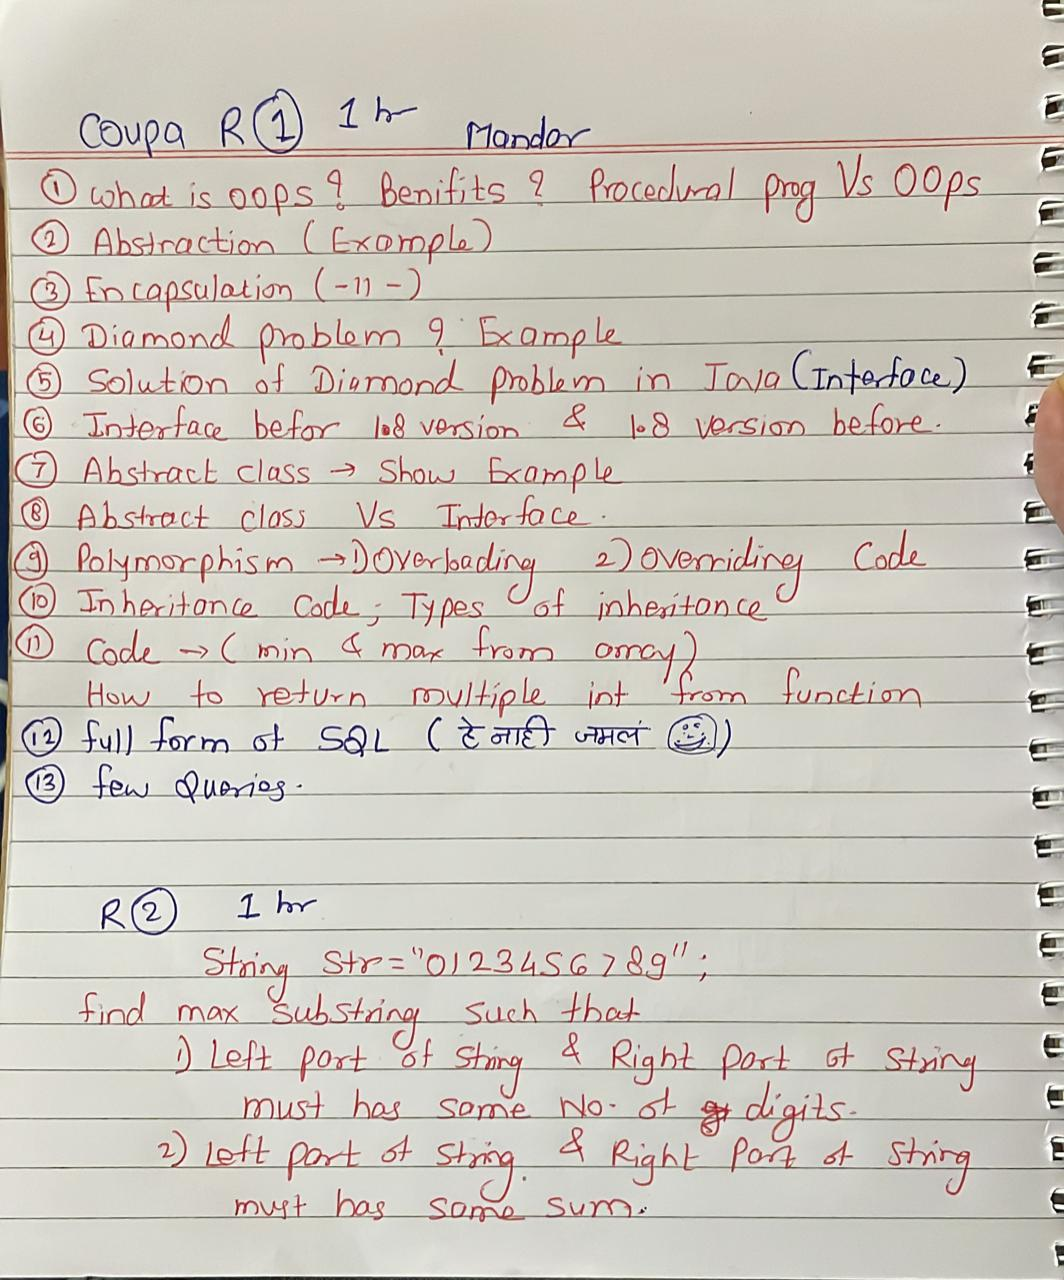 Coupa R ① 1 hr Mandar
① What is OOPS ? Benifits ? Procedural prog Vs OOps
② Abstraction (Example)
③ Encapsulation (-11-)
④ Diamond problem ? Example
⑤ Solution of Diamond problem in Java (Interface)
⑥ Interface befor 1.8 version & 1.8 version before.
⑦ Abstract class → Show Example
⑧ Abstract class Vs Interface.
⑨ Polymorphism → 1) Overloading 2) Overriding Code
⑩ Inheritance Code; Types of inheritance
⑪ Code → (min & max from array)
How to return multiple int from function
⑫ full form of SQL (हे नाही जमलं ☺)
⑬ few Queries.
R ② 1 hr
String Str = "0123456789";
find max substring such that
1) Left part of String & Right part of String
must has same No. of digits.
2) Left part of String. & Right Part of String
must has same sum.